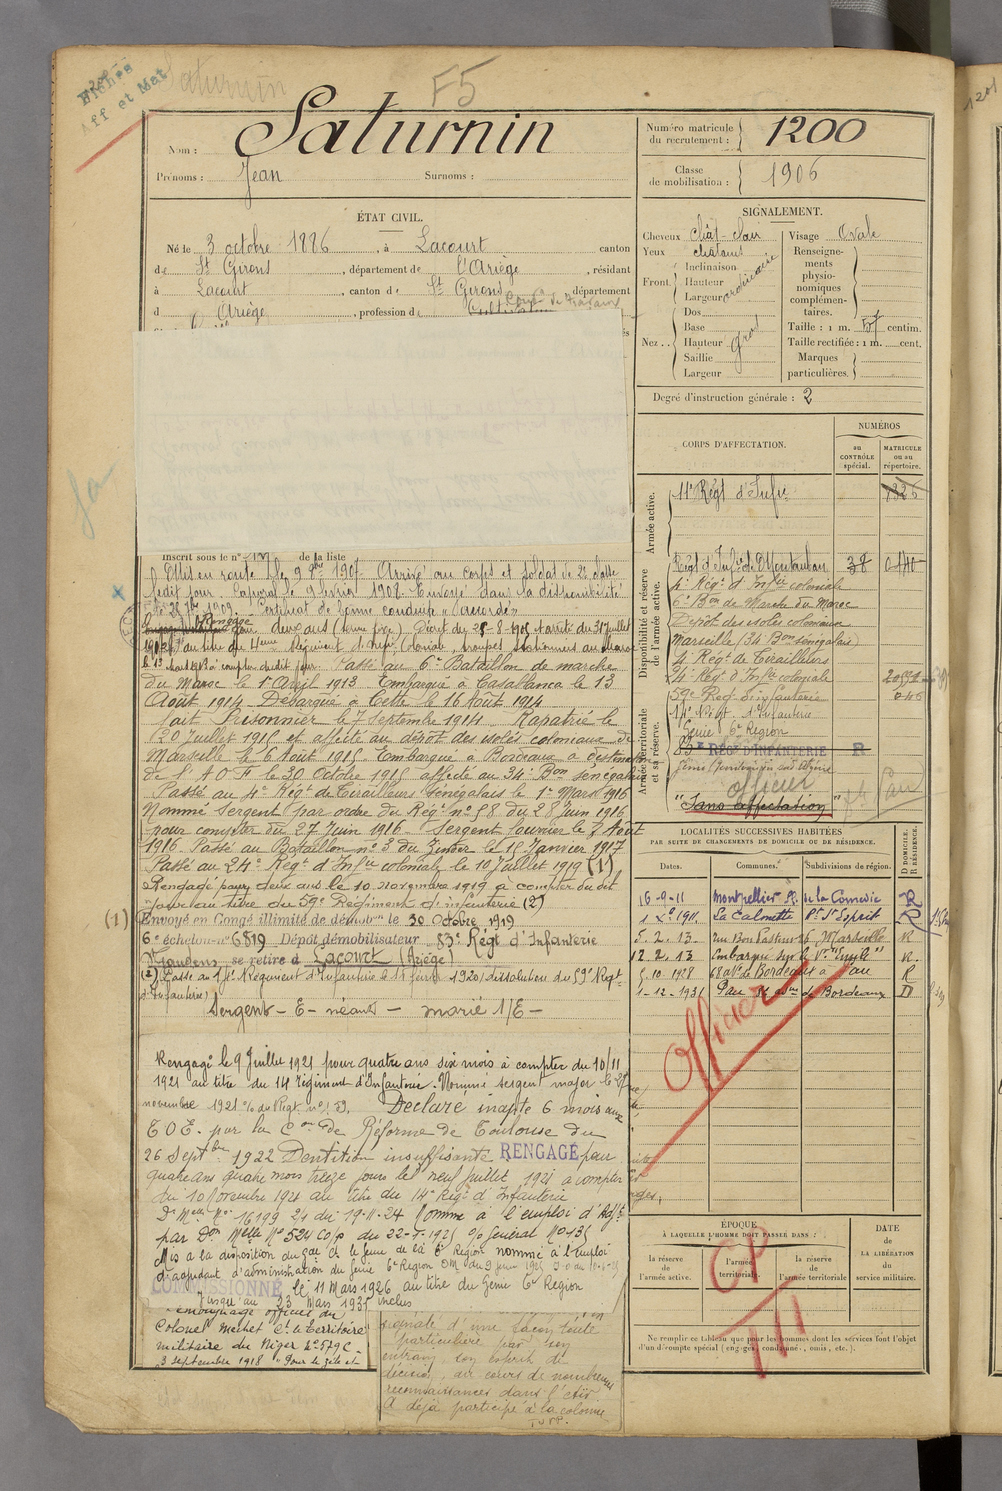 Fiches
Aff et Mat
Saturnin
F5
Nom : Saturnin
Prénoms : Jean Surnoms :
Numéro matricule du recrutement : 1200
Classe de mobilisation : 1906
ÉTAT CIVIL.
Né le 3 octobre 1886, à Lacourt canton
de St Girons, département de l'Ariège, résidant
à Lacourt, canton de St Girons, département
d Ariège, profession de
SIGNALEMENT.
Cheveux Chât-clair
Yeux chatains
Front. Inclinaison
Hauteur
Largeur
ordinaire
Nez .. Dos
Base
Hauteur
Saillie
Largeur
gros
Visage Ovale
Renseignements physionomiques complémentaires.
Taille : 1 m. 57 centim.
Taille rectifiée : 1 m. cent.
Marques particulières.
Degré d'instruction générale : 2
CORPS D'AFFECTATION.
NUMÉROS
au CONTRÔLE spécial.
MATRICULE ou au répertoire.
Armée active.
11e Régt d'Infie 1326
Disponibilité et réserve de l'armée active.
Régt d'Infie de Montauban 38
4e Régt d'Infie coloniale
6e Bon de Marche du Maroc
Dépôt des isolés coloniaux
Marseille/34 Bon Sénégalais
4e Régt de Tirailleurs
24e Régt d'Infie coloniale
59e Régt d'infanterie
14e Régt d'Infanterie
Génie 6e Région
Armée territoriale et sa réserve.
83e RÉGt D'INFANTERIE R
officier
"Sans affectation"
Inscrit sous le n° de la liste
Mis en route le 9 9bre 1907. Arrivé au corps et soldat de 2e classe
ledit jour. Caporal le 9 février 1908. Envoyé dans la disponibilité
le 28 7bre 1909. Certificat de bonne conduite "accordé"
Rengagé
pour deux ans
Régiment d'Infie Coloniale, troupes stationnées au Maroc
à compter dudit jour. Passé au 6e Bataillon de marche
du Maroc le 1er Avril 1913. Embarqué à Casablanca le 13
Août 1914. Débarqué à Cette le 16 Août 1914
Fait Prisonnier le 7 Septembre 1914. Rapatrié le
20 Juillet 1915 et affecté au dépôt des isolés coloniaux de
Marseille le 6 Août 1915. Embarqué à Bordeaux à destination
de l'A O F le 30 Octobre 1915 affecté au 34e Bon Sénégalais
Passé au 4e Régt de Tirailleurs Sénégalais le 1er Mars 1916
Nommé Sergent par ordre du Régt n° 58 du 28 Juin 1916
pour compter du 27 Juin 1916. Sergent fourrier le 3 Août
1916. Passé au Bataillon n° 3 du Zinder le 15 Janvier 1917
Passé au 24e Régt d'Infie coloniale le 10 Juillet 1919 (1)
Rengagé pour deux ans le 10 Novembre 1919 à compter du dit
jour au titre du 59e Régiment d'infanterie (2)
(1) Envoyé en Congé illimité de démobon le 30 Octobre 1919
6e échelon n° 6819 Dépôt démobilisateur 83e Régt d'Infanterie
St Gaudens se retire à Lacourt (Ariège)
(2) Passé au 14e Régiment d'Infanterie le 1920 (dissolution du 59e Regt
d'Infanterie)
Sergent - E - néant - marié 1/E -
Rengagé le 9 Juillet 1921 pour quatre ans six mois à compter du 10/11
1921 au titre du 14 régiment d'Infanterie. Nommé sergent major le
novembre 1921 Déclaré inapte 6 mois aux
T O E. par la Con de Réforme de Toulouse du
26 Septbre 1922 Dentition insuffisante RENGAGÉ pour
quatre ans quatre mois treize jours le neuf juillet 1921 à compter
du 10 Novembre 1921 au titre du 14e Régt d'Infanterie
Don Melle No 16199 2/1 du 19-11-24 Nommé à l'emploi d'Adjt
par Don Melle No 524
Mis à la disposition du Gal Ct le génie de la 6e Région nommé à l'emploi
d'adjudant d'administration du Génie 6e Région
COMMISSIONNÉ le 11 Mars 1926 au titre du Génie 6e Région
Jusqu'au 23 Mars 1935 inclus
Témoignage officiel du
Colonel Méchet Ct le Territoire
militaire du Niger No 579 C-
3 Septembre 1918 "Pour le zèle et
signalé d'une façon toute
particulière par son
entrain, son esprit de
décision, au cours de nombreuses
reconnaissances dans l'Aïr.
A déjà participé à la colonne
LOCALITÉS SUCCESSIVES HABITÉES
PAR SUITE DE CHANGEMENTS DE DOMICILE OU DE RÉSIDENCE.
Dates. Communes. Subdivisions de région. D DOMICILE. R RÉSIDENCE.
16-9-11 Montpellier Pl. de la Comédie R
1 Xe 1911. La Calmette Pt St Esprit R
5. 2. 13 rue Bon Pasteur 26 Marseille R
12. 2. 13 Embarqué sur le Vr R.
5. 10. 1928 68 av. de Bordeaux à Pau R
1-12-1931 Pau de Bordeaux D
Officier
ÉPOQUE
À LAQUELLE L'HOMME DOIT PASSER DANS :
la réserve de l'armée active.
l'armée territoriale.
la réserve de l'armée territoriale
DATE de LA LIBÉRATION du service militaire.
CP
Ne remplir ce tableau que pour les hommes dont les services font l'objet
d'un décompte spécial (engagés, condamnés, omis, etc.).